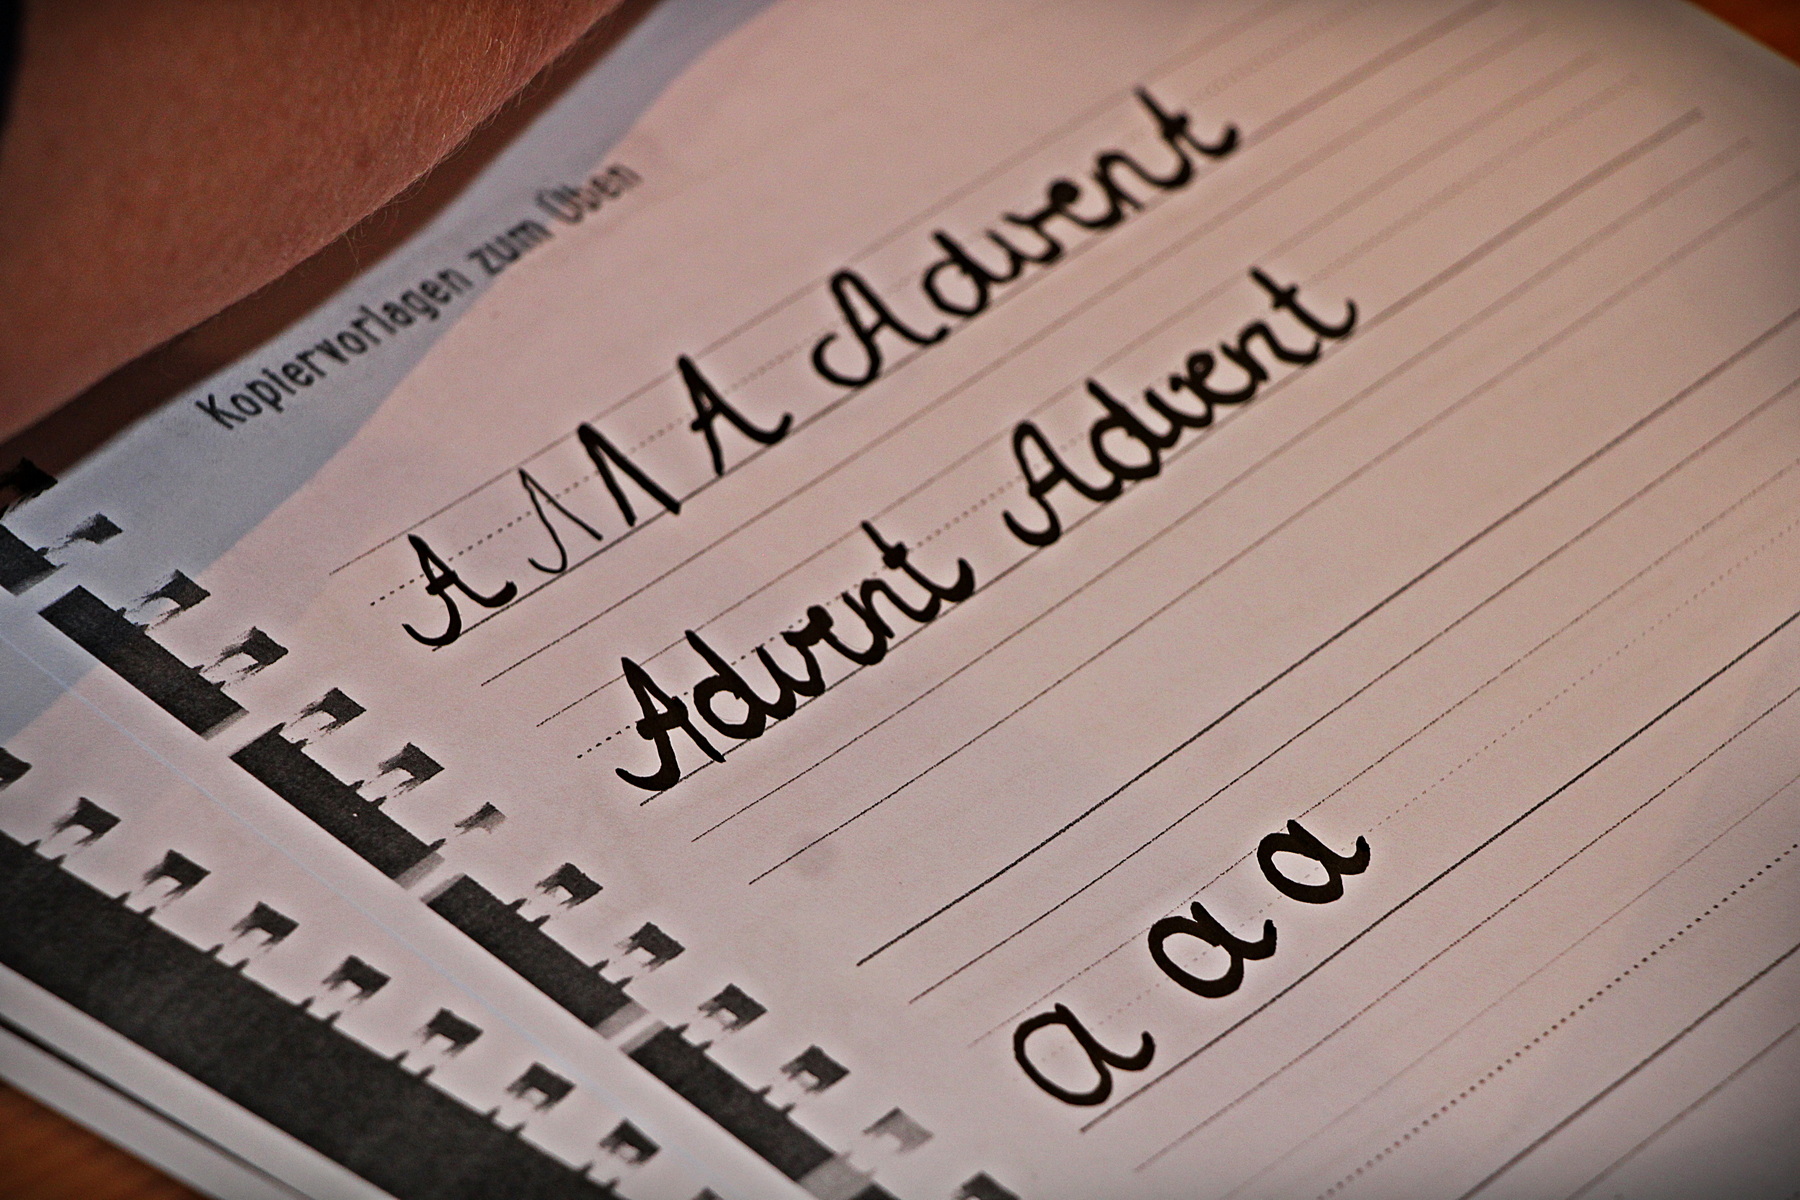 Kopiervorlagen zum Üben
A A A A Advent
Advent Advent
a a a